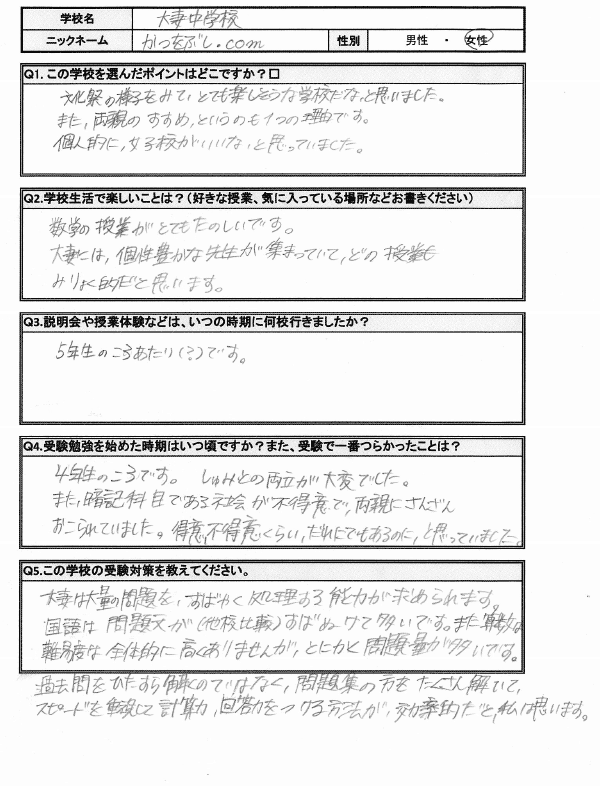 学校名 大妻中学校
ニックネーム かつをぶし.com 性別 男性 ・ 女性
Q1. この学校を選んだポイントはどこですか？□
文化祭の様子をみて、とても楽しそうな学校だな、と思いました。
また、両親のすすめ、というのも1つの理由です。
個人的に、女子校がいいな、と思っていました。
Q2.学校生活で楽しいことは？（好きな授業、気に入っている場所などお書きください）
数学の授業がとてもたのしいです。
大妻には、個性豊かな先生が集まっていて、どの授業も
みりょく的だと思います。
Q3.説明会や授業体験などは、いつの時期に何校行きましたか？
5年生のころあたり(?)です。
Q4.受験勉強を始めた時期はいつ頃ですか？また、受験で一番つらかったことは？
4年生のころです。 しゅみとの両立が大変でした。
また、暗記科目である社会が不得意で、両親にさんざん
おこられていました。得意、不得意くらい、だれにでもあるのに、と思っていました。
Q5.この学校の受験対策を教えてください。
大妻は大量の問題を、すばやく処理する能力が求められます。
国語は問題文が(他校比較)ずばぬけて多いです。また算数は
難易度は全体的に高くありませんが、とにかく問題量が多いです。
過去問をひたすら解くのではなく、問題集の方をたくさん解いて、
スピードを重視して計算力、回答力をつける方法が、効率的だと、私は思います。